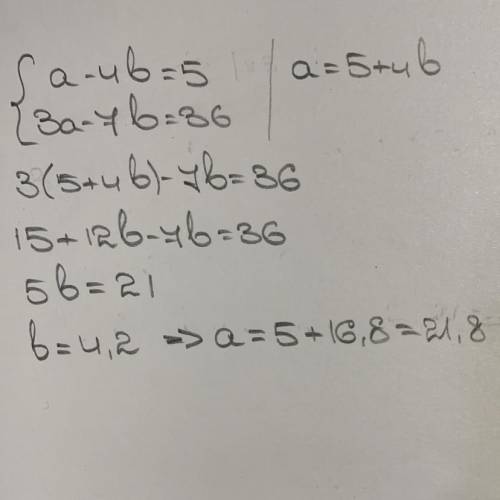 a-4b=5 | a=5+4b
3a-7b=36
3(5+4b)-7b=36
15+12b-7b=36
5b=21
b=4,2 => a=5+16,8=21,8